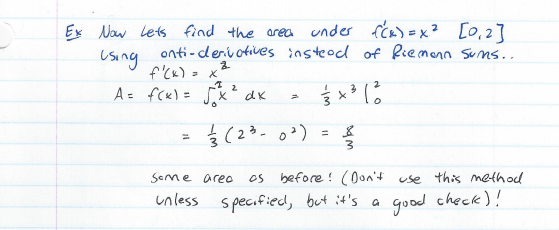 Ex Now lets find the area under f'(x) = x² [0,2]
using anti-derivatives instead of Riemann sums..
f'(x) = x²
A = f(x) = ∫₀² x² dx = 1/3 x³ |₀²
= 1/3 (2³ - 0³) = 8/3
same area as before! (Don't use this method
unless specified, but it's a good check)!